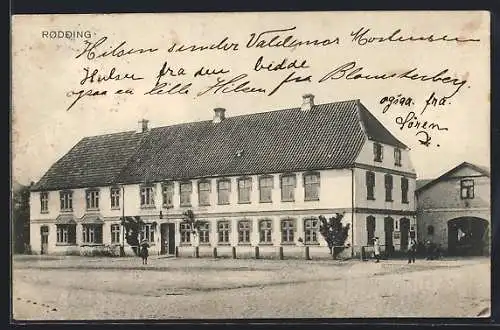 RØDDING.
Hilsen sender Valdemar Mortensen
Hilsen fra den bedde
ogsaa en lille Hilsen fra Blomsterberg
ogsaa fra
Søren